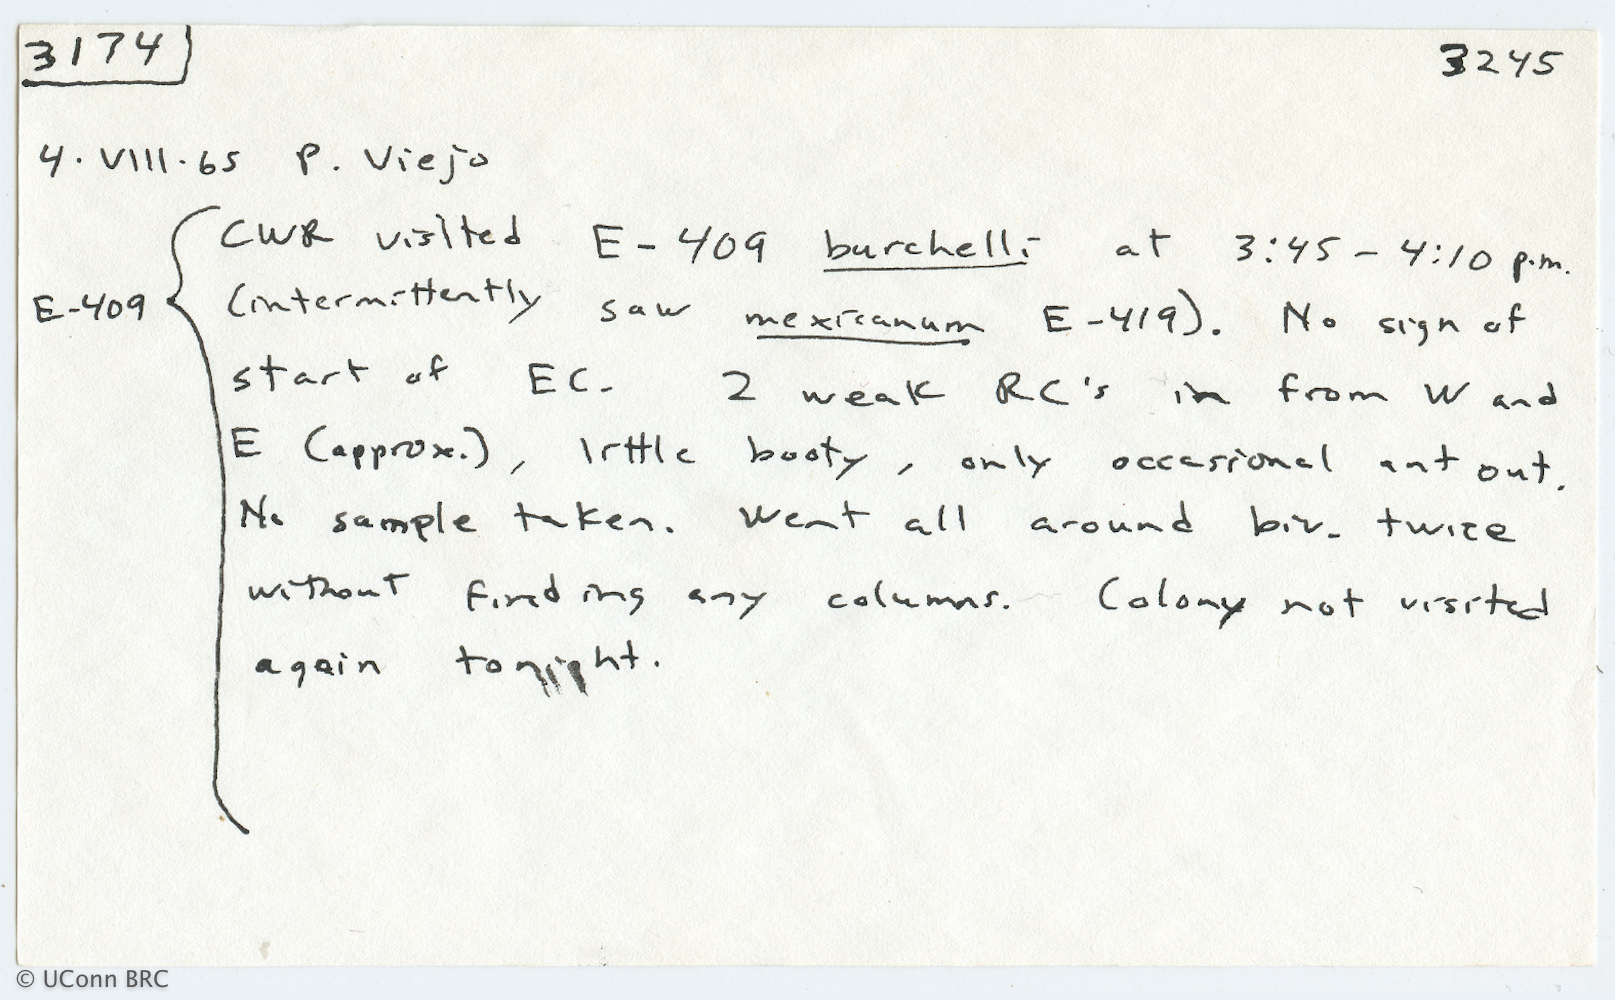 3174
3245
4.VIII.65 P. Viejo
CWR visited E-409 burchelli at 3:45-4:10 p.m.
E-409
(intermittently saw mexicanum E-419). No sign of
start of EC. 2 weak RC's in from W and
E (approx.), little booty, only occasional ant out.
No sample taken. Went all around biv. twice
without finding any columns. Colony not visited
again tonight.
© UConn BRC